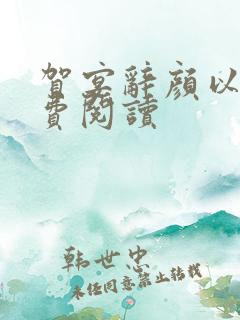 賀宴辭顔以
費閱讀
韩世忠
未经同意禁止转载